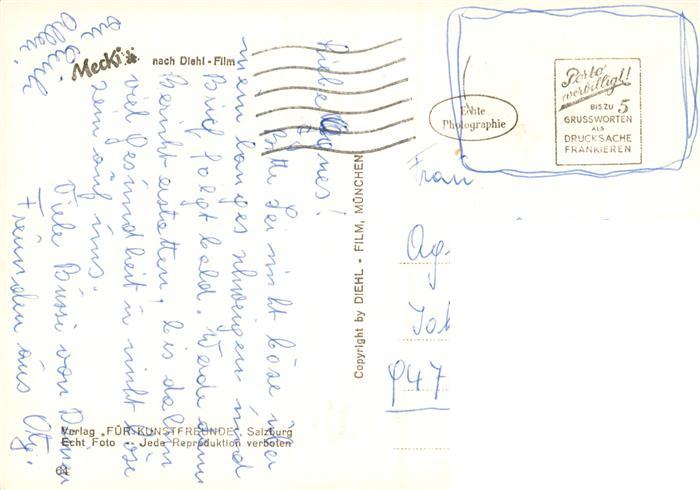 Mecki nach Diehl-Film
Liebe Agnes!
Bitte sei nicht böse über
mein langes schweigen und
Brief folgt bald. Werde dann
Bericht erstatten, bis dahin
viel Gesundheit u nicht böse
sein auf uns.
Viele Bussi von Deinen
Freunden aus
Copyright by DIEHL - FILM, MÜNCHEN
Verlag „FÜR KUNSTFREUNDE" Salzburg
Echt Foto -- Jede Reproduktion verboten
64
Echte
Photographie
Porto
verbilligt!
BIS ZU 5
GRUSSWORTEN
ALS
DRUCKSACHE
FRANKIEREN
Frau
Ag
947